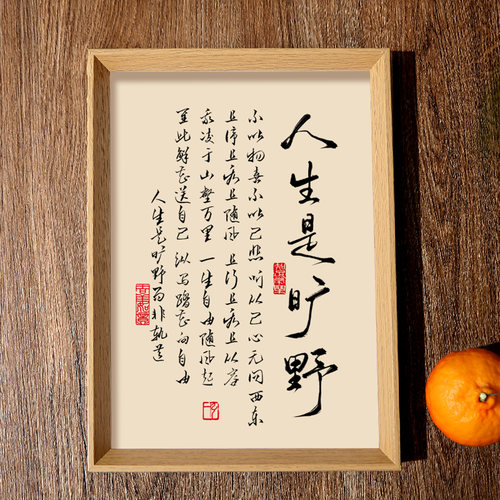 人生是旷野
不以物喜不以己悲 听从己心无问西东
且停且忘且随风 且行且看且从容
凌于山壑万里 一生自由随风起
至此鲜花送自己 纵马踏花向自由
人生是旷野而非轨道